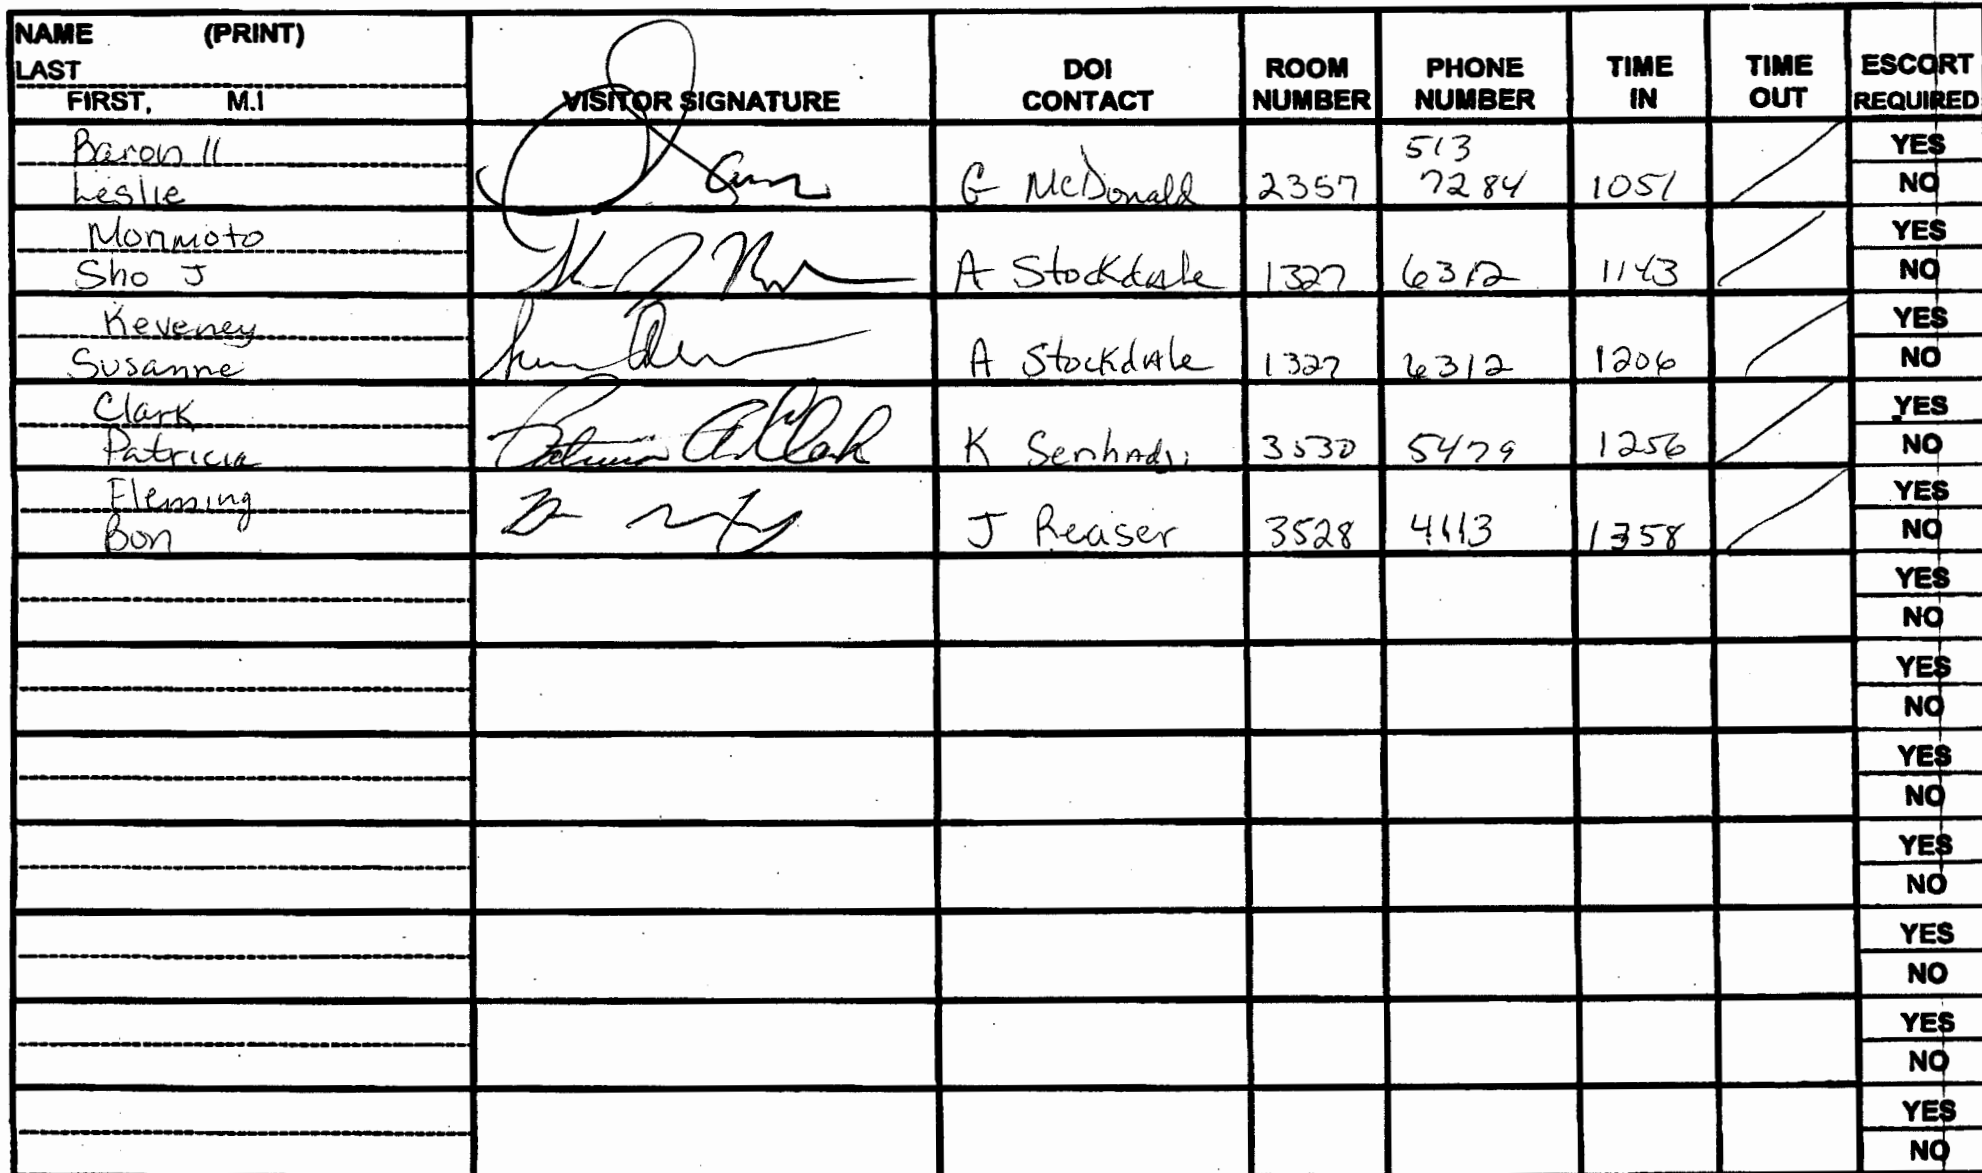 NAME (PRINT)
LAST
FIRST, M.I
VISITOR SIGNATURE
DOI
CONTACT
ROOM
NUMBER
PHONE
NUMBER
TIME
IN
TIME
OUT
ESCORT
REQUIRED
Baron II
Leslie
G McDonald
2357
513
7284
1051
YES
NO
Morimoto
Sho J
A Stockdale
1327
6312
1143
YES
NO
Keveney
Susanne
A Stockdale
1327
6312
1206
YES
NO
Clark
Patricia
Patricia A Clark
K
3530
5479
1256
YES
NO
Fleming
Bon
J Reaser
3528
4113
1358
YES
NO
YES
NO
YES
NO
YES
NO
YES
NO
YES
NO
YES
NO
YES
NO